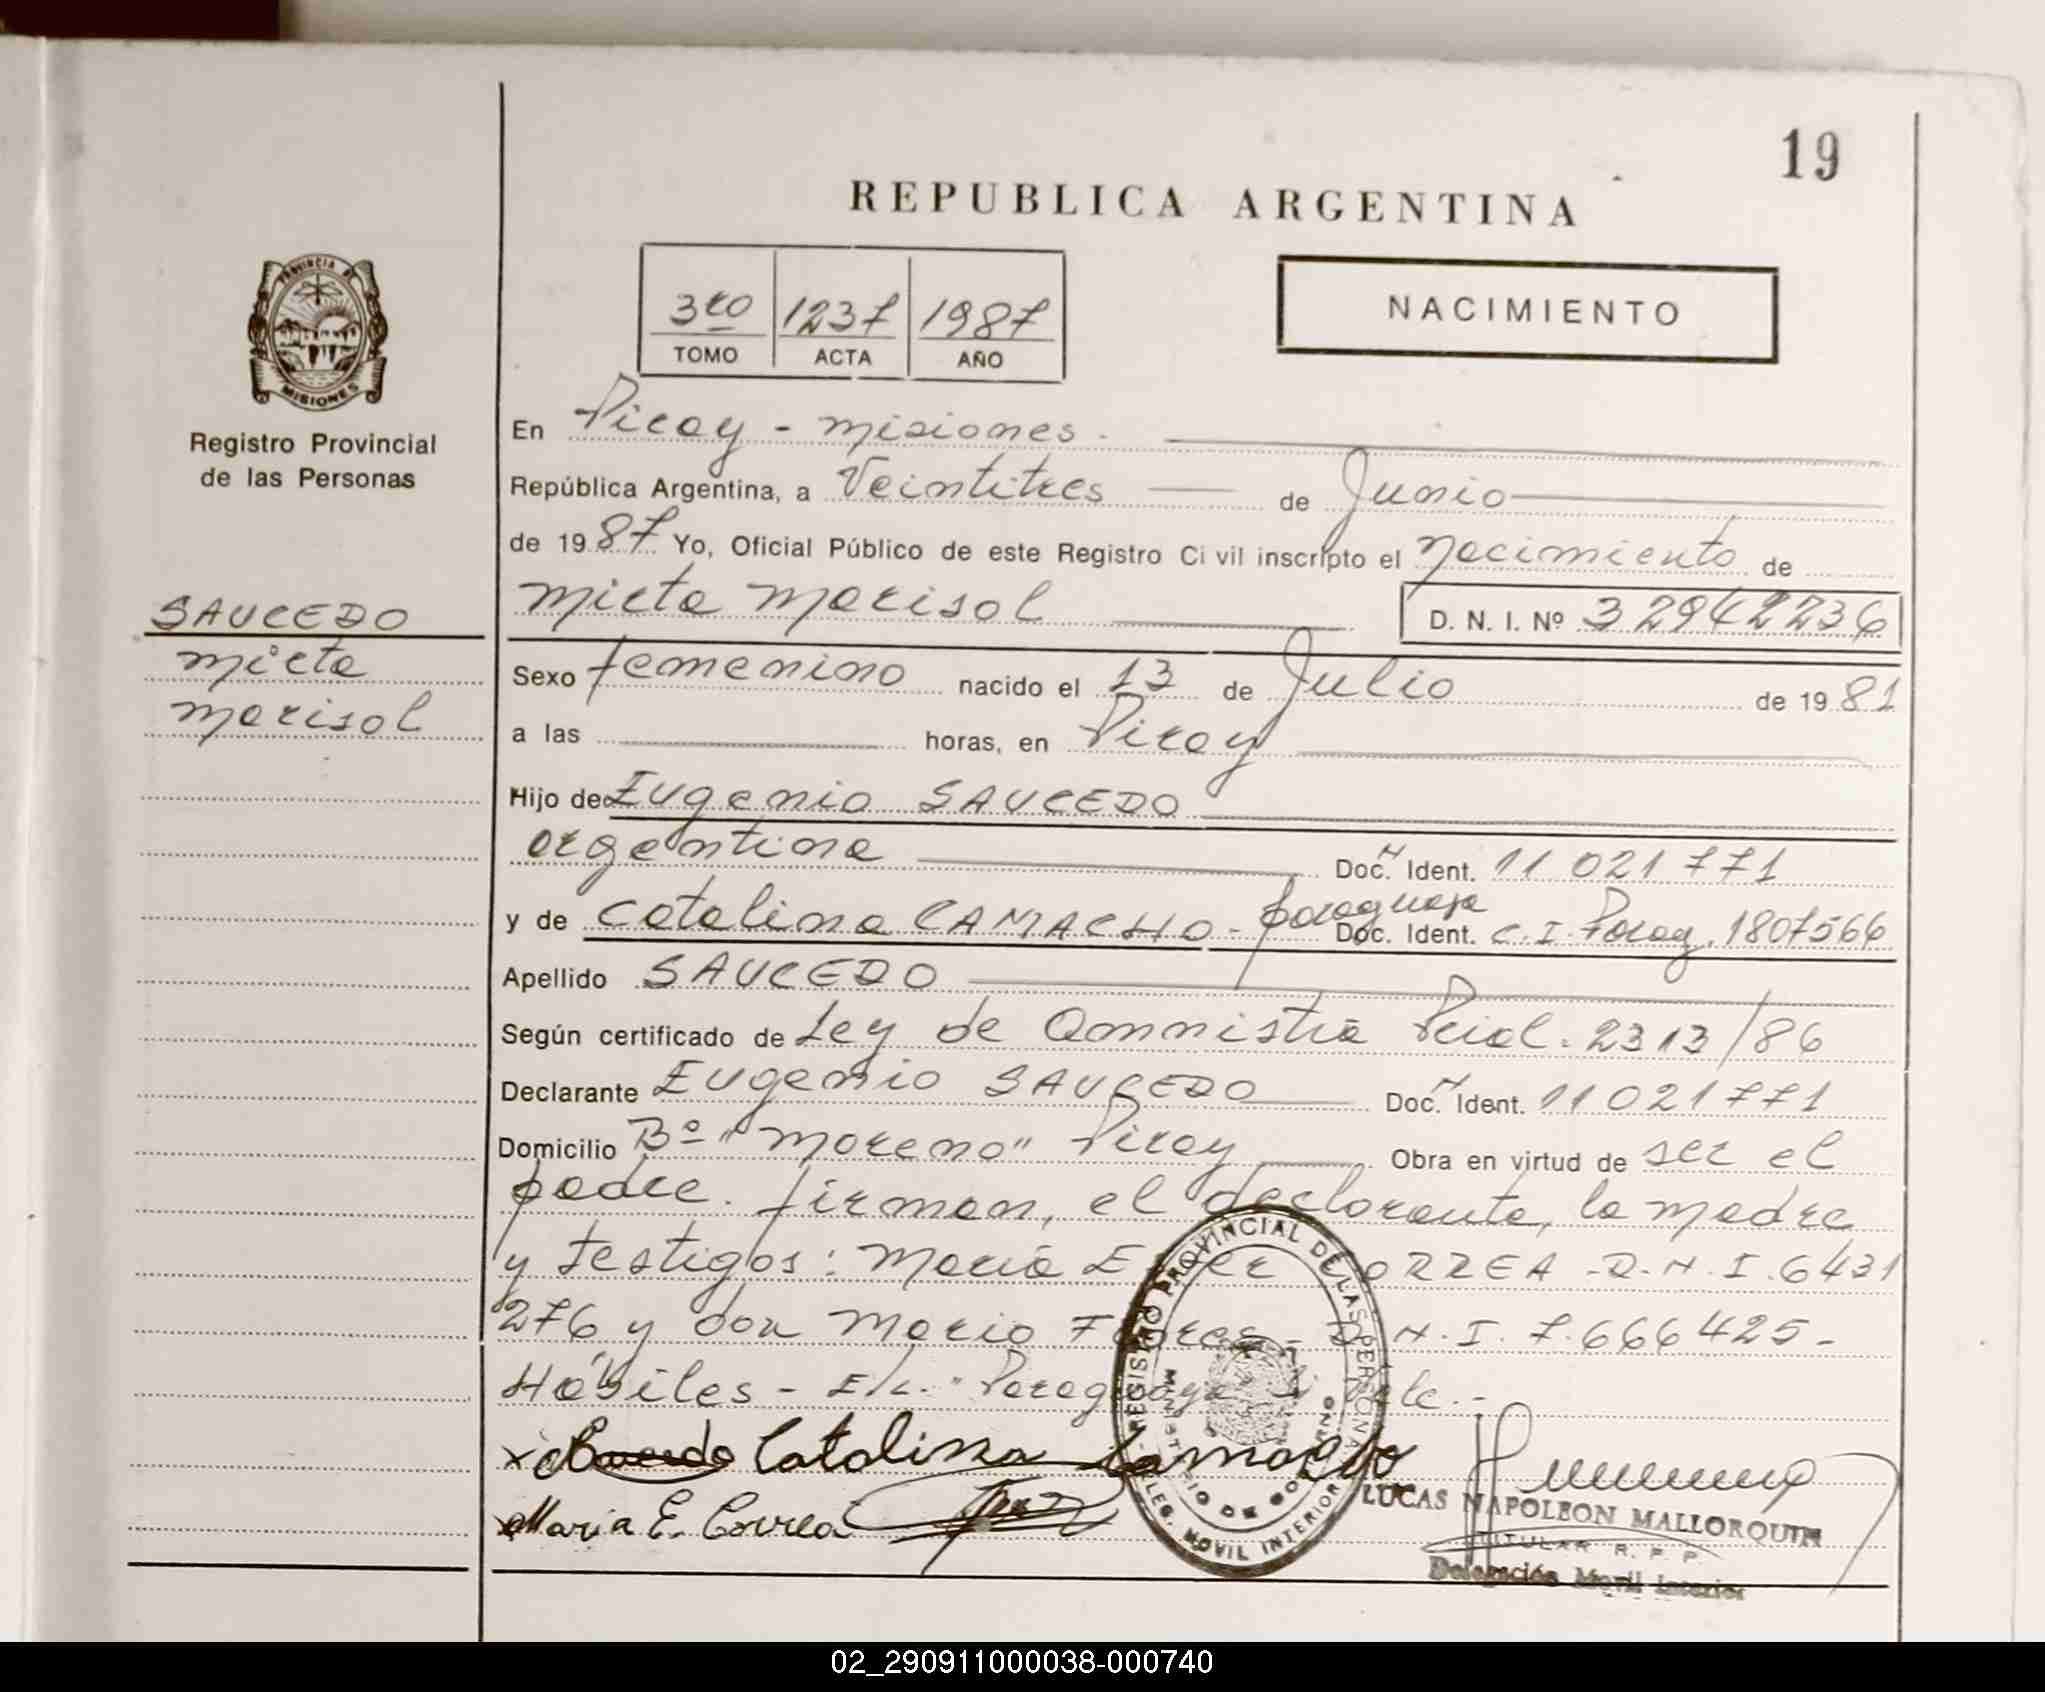 19
REPUBLICA ARGENTINA
3ro 1237 1987
TOMO ACTA AÑO
NACIMIENTO
PROVINCIA DE
MISIONES
Registro Provincial
de las Personas
SAUCEDO
Mirta
Marisol
En Piray - Misiones.
República Argentina, a Veintitres de Junio
de 1987 Yo, Oficial Público de este Registro Civil inscripto el Nacimiento de
Mirta Marisol D. N. I. Nº 32942236
Sexo femenino nacido el 13 de Julio de 1981
a las horas, en Piray
Hijo de Eugenio SAUCEDO
argentina Doc. Ident. 11 021 771
y de Catalina CAMACHO - paraguaya Doc. Ident. C.I. Parag. 1807566
Apellido SAUCEDO
Según certificado de Ley de Amnistia Pcial. 2313/86
Declarante Eugenio SAUCEDO Doc. Ident. 11 021 771
Domicilio Bº "Moreno" Piray Obra en virtud de ser el
padre. firman, el declarante, la madre
y testigos: Maria Ester CORREA - D.N.I. 6431
276 y don Mario Flores - D.N.I. 7.666425-
Hábiles - E/L. "Paraguaya" Vale.-
Catalina Camacho
Maria E. Correa
REGISTRO PROVINCIAL DE LAS PERSONAS
MINISTERIO DE GOBIERNO
DELEG. MOVIL INTERIOR
LUCAS NAPOLEON MALLORQUIN
TITULAR R. P. P.
Delegación Movil Interior
02_290911000038-000740